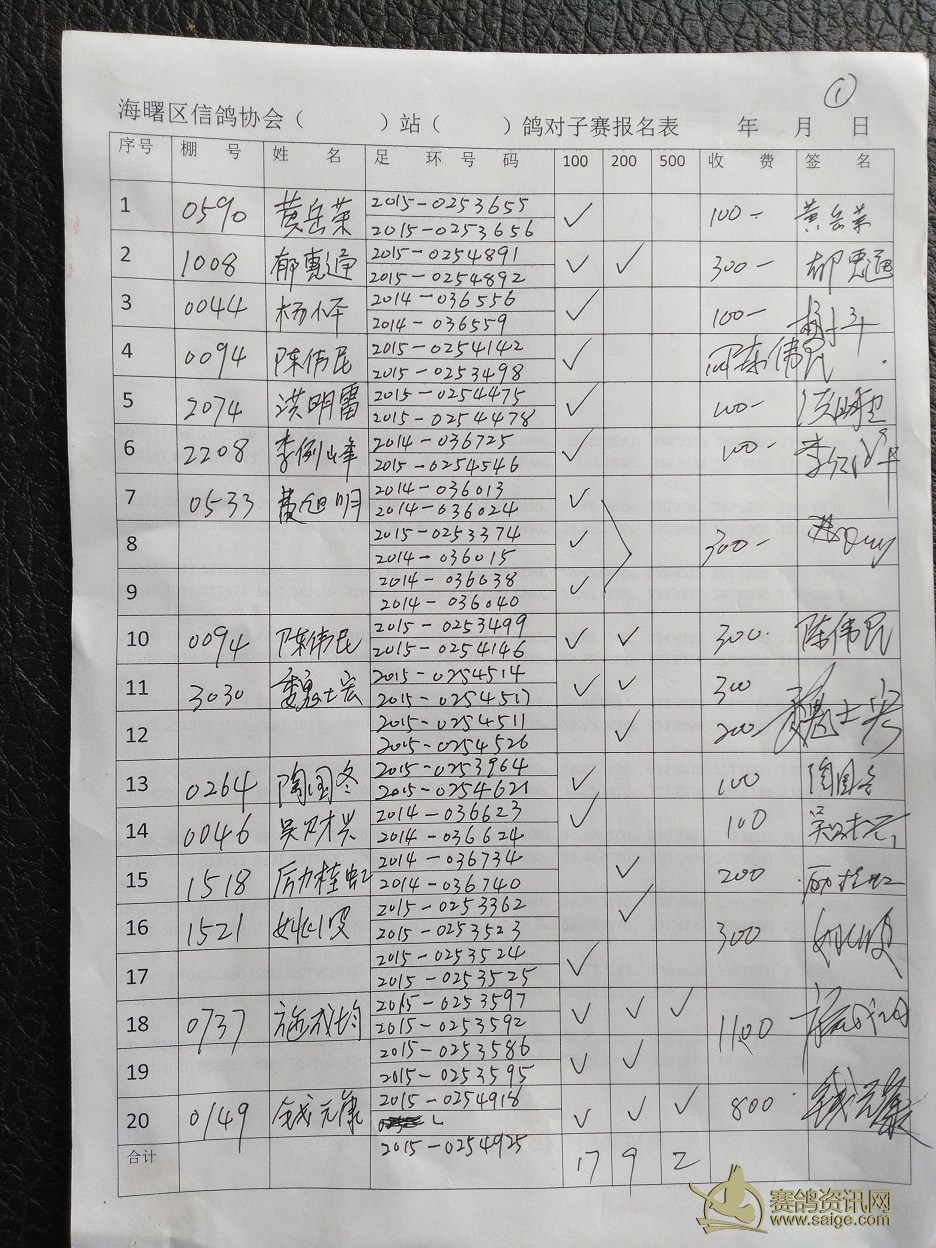 ①
海曙区信鸽协会（ ）站（ ）鸽对子赛报名表 年 月 日
序号 棚 号 姓 名 足 环 号 码 100 200 500 收 费 签 名
1 0590 黄岳荣 2015-0253655 ✓ 100- 黄岳荣
2015-0253656
2 1008 郁惠通 2015-0254891 ✓ ✓ 300- 郁惠通
2015-0254892
3 0044 杨小平 2014-036556 ✓ 100-
2014-036559
4 0094 陈伟民 2015-0254142 ✓ 陈伟民
2015-0253498
5 2074 洪明雷 2015-0254475 ✓ 100-
2015-0254478
6 2208 李例峰 2014-036725 ✓ 100-
2015-0254546
7 0533 黄旭明 2014-036013 ✓
2014-036024
8 2015-0253374 ✓ 300-
2014-036015
9 2014-036038 ✓
2014-036040
10 0094 陈伟民 2015-0253499 ✓ ✓ 300. 陈伟民
2015-0254146
11 3030 魏士宏 2015-0254514 ✓ ✓ 300
2015-0254517
12 2015-0254511 ✓ 200- 魏士宏
2015-0254526
13 0264 陶国冬 2015-0253964 ✓ 100 陶国冬
2015-0254621
14 0046 吴财兴 2014-036623 ✓ 100
2014-036624
15 1518 厉桂虹 2014-036734 ✓ 200 厉桂虹
2014-036740
16 1521 2015-0253362 ✓ 300
2015-0253523
17 2015-0253524 ✓
2015-0253525
18 0737 施成均 2015-0253597 ✓ ✓ ✓ 1100
2015-0253592
19 2015-0253586 ✓ ✓
2015-0253595
20 0149 钱元康 2015-0254918 ✓ ✓ ✓ 800 钱元康
2015-0254925
合计 17 9 2
赛鸽资讯网
www.saige.com